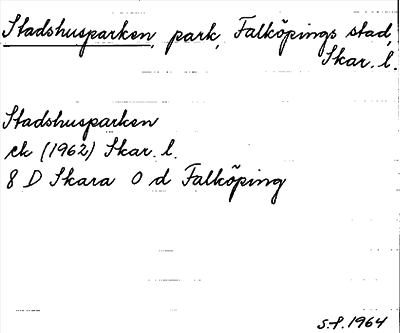 Stadshusparken, park, Falköpings stad,
Skar. l.
Stadshusparken
ek (1962) Skar. l.
8 D Skara O d Falköping
S.F. 1964